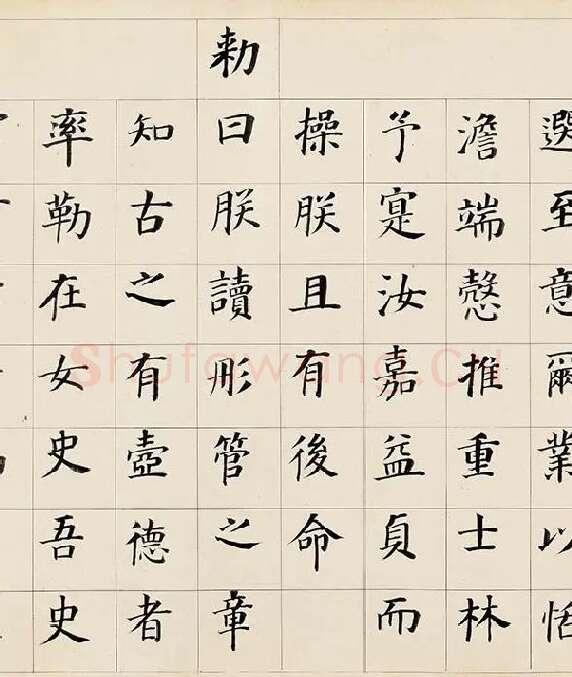 選至意爾業以恬
澹端愨推重士林
予寔汝嘉益貞而
操朕且有後命
勑
曰朕讀彤管之章
知古之有壼德者
率勒在女史吾史
Shufawang.CN